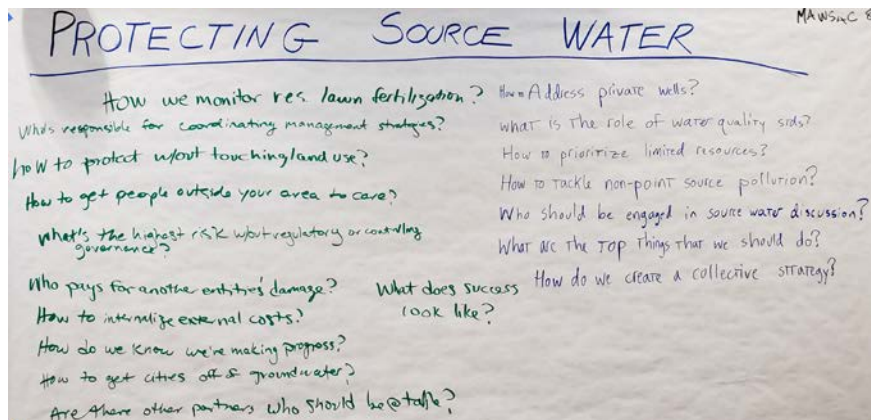 PROTECTING SOURCE WATER
MAWSAC
How we monitor res. lawn fertilization?
Who's responsible for coordinating management strategies?
how to protect w/out touching land use?
How to get people outside your area to care?
What's the highest risk w/out regulatory or controlling
governance?
Who pays for another entities' damage?
How to internalize external costs?
How do we know we're making progress?
How to get cities off of groundwater?
Are there other partners who should be @ table?
What does success
look like?
How Address private wells?
what is the role of water quality stds?
How to prioritize limited resources?
How to tackle non-point source pollution?
Who should be engaged in source water discussion?
What are the TOP Things that we should do?
How do we create a collective strategy?